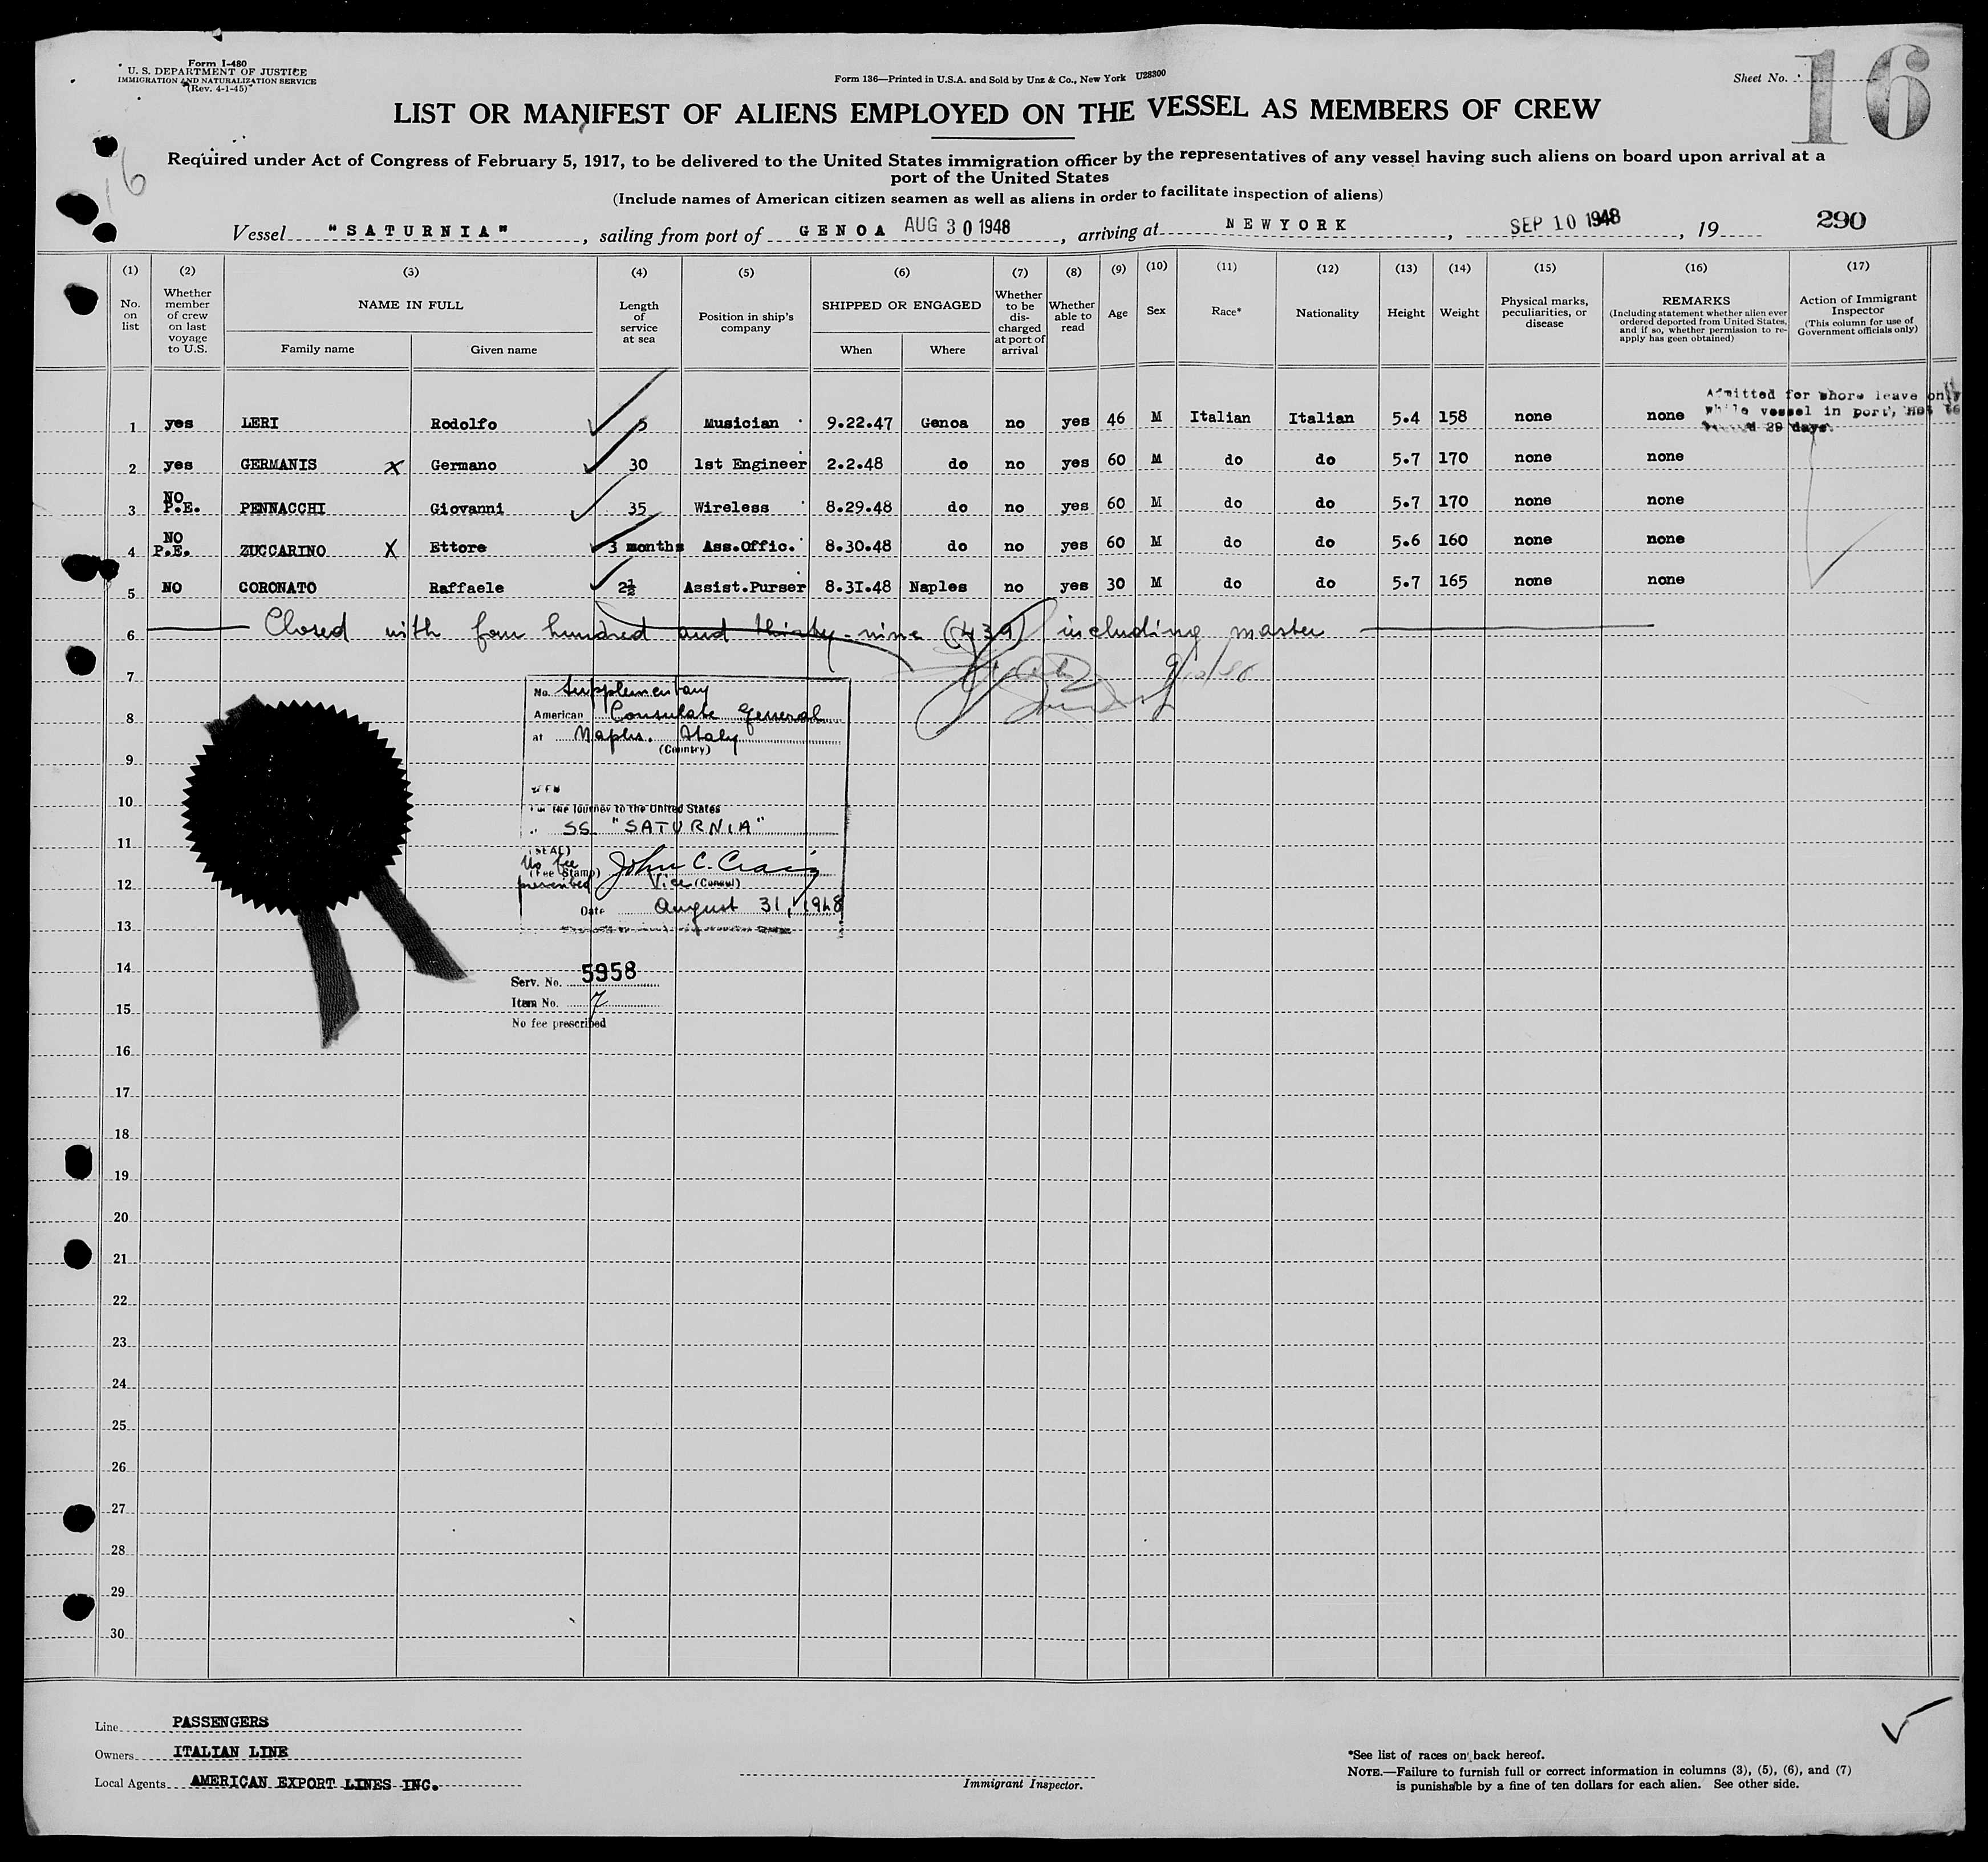 Form I-480
U. S. DEPARTMENT OF JUSTICE
IMMIGRATION AND NATURALIZATION SERVICE
(Rev. 4-1-45)
Form 136—Printed in U.S.A. and Sold by Unz & Co., New York U28300
Sheet No. 16
LIST OR MANIFEST OF ALIENS EMPLOYED ON THE VESSEL AS MEMBERS OF CREW
Required under Act of Congress of February 5, 1917, to be delivered to the United States immigration officer by the representatives of any vessel having such aliens on board upon arrival at a
port of the United States
(Include names of American citizen seamen as well as aliens in order to facilitate inspection of aliens)
16
Vessel "SATURNIA", sailing from port of GENOA AUG 30 1948, arriving at NEW YORK, SEP 10 1948, 19
290
(1) (2) (3) (4) (5) (6) (7) (8) (9) (10) (11) (12) (13) (14) (15) (16) (17)
No. on list
Whether member of crew on last voyage to U.S.
NAME IN FULL
Family name Given name
Length of service at sea
Position in ship's company
SHIPPED OR ENGAGED
When Where
Whether to be discharged at port of arrival
Whether able to read
Age
Sex
Race*
Nationality
Height
Weight
Physical marks, peculiarities, or disease
REMARKS
(Including statement whether alien ever ordered deported from United States, and if so, whether permission to re-apply has geen obtained)
Action of Immigrant Inspector
(This column for use of Government officials only)
Admitted for shore leave only
while vessel in port, not to
29 days.
1 yes LERI Rodolfo 5 Musician 9.22.47 Genoa no yes 46 M Italian Italian 5.4 158 none none
2 yes GERMANIS X Germano 30 1st Engineer 2.2.48 do no yes 60 M do do 5.7 170 none none
3 NO P.E. PENNACCHI Giovanni 35 Wireless 8.29.48 do no yes 60 M do do 5.7 170 none none
4 NO P.E. ZUCCARINO X Ettore 3 months Ass.Offic. 8.30.48 do no yes 60 M do do 5.6 160 none none
5 NO CORONATO Raffaele 2½ Assist.Purser 8.31.48 Naples no yes 30 M do do 5.7 165 none none
6 Closed with four hundred and thirty-nine (439) including master
7
8
9
10
11
12
13
14
15
16
17
18
19
20
21
22
23
24
25
26
27
28
29
30
No. Supplementary
American Consulate General
at Naples. Italy
(Country)
For the journey to the United States
SS "SATURNIA"
(SEAL)
No fee
(Fee Stamp)
prescribed
John C. Craig
Vice (Consul)
Date August 31, 1948
Serv. No. 5958
Item No. 7
No fee prescribed
Line PASSENGERS
Owners ITALIAN LINE
Local Agents AMERICAN EXPORT LINES INC.
Immigrant Inspector.
*See list of races on back hereof.
NOTE.—Failure to furnish full or correct information in columns (3), (5), (6), and (7)
is punishable by a fine of ten dollars for each alien. See other side.